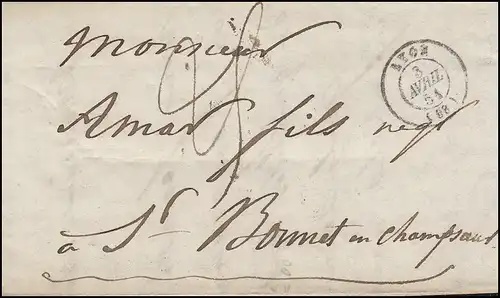 Monsieur
Amar fils negt
à St Bonnet en champsaur
LYON
3
AVRIL
51
(68)